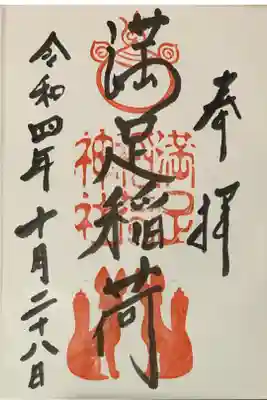 奉拝
満足稲荷
満足稲荷
神社
令和四年十月二十八日